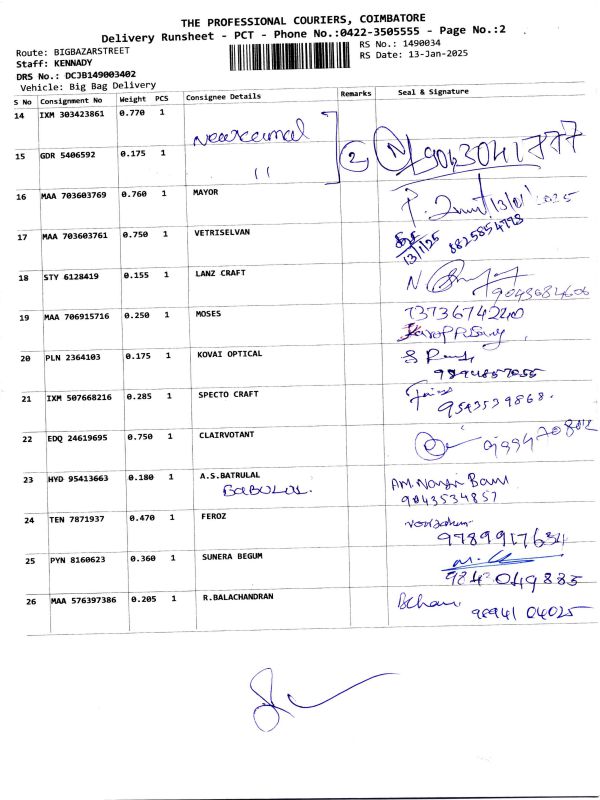 THE PROFESSIONAL COURIERS, COIMBATORE
Delivery Runsheet - PCT - Phone No.:0422-3505555 - Page No.:2
Route: BIGBAZARSTREET
RS No.: 1490034
Staff: KENNADY
RS Date: 13-Jan-2025
DRS No.: DCJB149003402
Vehicle: Big Bag Delivery
S No Consignment No Weight PCS Consignee Details Remarks Seal & Signature
14 IXM 303423861 0.770 1
15 GDR 5406592 0.175 1 11 2 N 9043041777
16 MAA 703603769 0.760 1 MAYOR 13/01/2025
17 MAA 703603761 0.750 1 VETRISELVAN 13/1/25 8825854793
18 STY 6128419 0.155 1 LANZ CRAFT N 9043684606
19 MAA 706915716 0.250 1 MOSES
20 PLN 2364103 0.175 1 KOVAI OPTICAL
21 IXM 507668216 0.285 1 SPECTO CRAFT 9543539868.
22 EDQ 24619695 0.750 1 CLAIRVOTANT
23 HYD 95413663 0.180 1 A.S.BATRULAL
BABULAL. 9043534857
24 TEN 7871937 0.470 1 FEROZ
9789917634
25 PYN 8160623 0.360 1 SUNERA BEGUM
9842049885
26 MAA 576397386 0.205 1 R.BALACHANDRAN
98941 04025